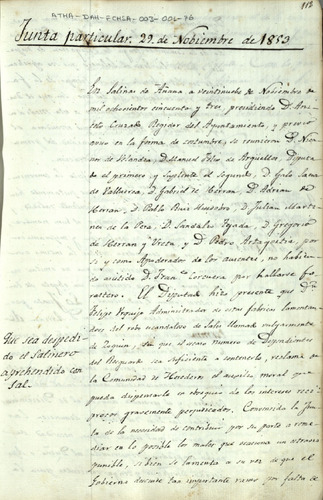 112
ATHA-DAH-FCHSA-003-006-78
Junta particular. 29. de Nobiembre de 1853
En Salinas de Añana a veintinuebe de Nobiembre de
mil ochocientos cincuenta y tres, presidiendo D. Ani-
ceto Regidor del Ayuntamiento, y previo
aviso en la forma de costumbre, se reunieron D.
de D. Manuel Felix de Arguelles, Diputa-
do el primero, y suplente el segundo, D. Galo Sanz
de Valluerca, D. Gabriel de Herran, D. Adrian de
Herran, D. Pablo Ruiz D. Julian Marti-
nez de la Pera, D. Sandalio Tejada, D. Gregorio
de Herran y Viera y D. Pedro por
si y como Apoderador de los ausentes, no habien-
do asistido D. Fran.co Corcuera por hallarse fo-
rastero. El Diputado hizo presente que D.
Felipe Administrador de esta fabrica, lamentan-
dose del robo escandaloso de Sales llamado vulgarmente
de sin que el escaso numero de Dependientes
del Resguardo sea suficiente a contenerlo, reclama de
la Comunidad de Herederos el auxilio moral que
pueda dispensarle en obsequio de los intereses reci-
procos gravemente perjudicados. Convencida la Jun-
ta de la necesidad de contribuir por su parte a reme-
diar en lo posible los males que ocasiona un
punible, si bien se lamenta a su vez de que el
Gobierno descuide tan importante ramo por falta de
Que sea despedi-
do el Salinero
aprehendido con
sal.